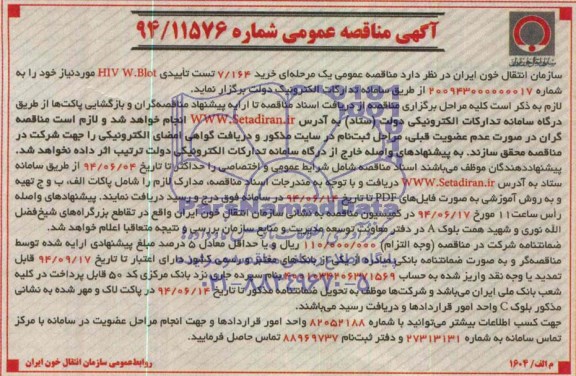 آگهی مناقصه عمومی شماره ۹۴/۱۱۵۷۶
سازمان انتقال خون ایران در نظر دارد مناقصه عمومی یک مرحله‌ای خرید ۷/۱۶۴ تست تأییدی HIV W.Blot موردنیاز خود را به
شماره ۲۰۰۹۴۳۰۰۰۰۰۰۰۱۷ از طریق سامانه تدارکات الکترونیک دولت برگزار نماید.
لازم به ذکر است کلیه مراحل برگزاری مناقصه از دریافت اسناد مناقصه تا ارایه پیشنهاد مناقصه‌گران و بازگشایی پاکت‌ها از طریق
درگاه سامانه تدارکات الکترونیکی دولت (ستاد) به آدرس WWW.Setadiran.ir انجام خواهد شد و لازم است مناقصه
گران در صورت عدم عضویت قبلی، مراحل ثبت‌نام در سایت مذکور و دریافت گواهی امضای الکترونیکی را جهت شرکت در
مناقصه محقق سازند. به پیشنهادهای واصله خارج از درگاه سامانه تدارکات الکترونیکی دولت ترتیب اثر داده نخواهد شد.
پیشنهاددهندگان موظف می‌باشند اسناد مناقصه شامل شرایط عمومی و اختصاصی را حداکثر تا تاریخ ۹۴/۰۶/۰۴ از طریق سامانه
ستاد به آدرس WWW.Setadiran.ir دریافت و با توجه به مندرجات اسناد مناقصه، مدارک لازم را شامل پاکات الف، ب و ج تهیه
و به روش آموزشی به صورت فایل‌های PDF تا تاریخ ۹۴/۰۶/ در سامانه فوق درج و رسید دریافت نمایند. پیشنهادهای واصله
رأس ساعت ۱۱ مورخ ۹۴/۰۶/۱۷ در کمیسیون مناقصه به نشانی سازمان انتقال خون ایران واقع در تقاطع بزرگراه‌های شیخ فضل
الله نوری و شهید همت بلوک A در دفتر معاونت توسعه مدیریت و منابع سازمان بررسی و نتیجه متعاقبا اعلام خواهد شد.
ضمانتنامه شرکت در مناقصه (وجه التزام) ۱۱۰/۰۰۰/۰۰۰ ریال و یا حداقل معادل ۵ درصد مبلغ پیشنهادی ارایه شده توسط
مناقصه‌گر و به صورت ضمانتنامه بانکی صادره از یکی از بانک‌های معتبر و رسمی کشور دارای اعتبار تا تاریخ ۹۴/۰۹/۱۷ قابل
تمدید یا وجه نقد واریز شده به حساب به نام سپرده جاری نزد بانک مرکزی کد ۵۰ قابل پرداخت در کلیه
شعب بانک ملی ایران می‌باشد و شرکت‌ها موظف به تحویل ضمانتنامه مذکور تا تاریخ ۹۴/۰۶/۱۴ در پاکت لاک و مهر شده به نشانی
مذکور بلوک C واحد امور قراردادها و دریافت رسید می‌باشند.
جهت کسب اطلاعات بیشتر می‌توانید با شماره ۸۲۰۵۲۱۸۸ واحد امور قراردادها و جهت انجام مراحل عضویت در سامانه با مرکز
تماس سامانه به شماره ۲۷۳۱۳۱۳۱ و دفتر ثبت‌نام ۸۸۹۶۹۷۳۷ تماس حاصل فرمایید.
م الف/ ۱۶۰۴
روابط عمومی سازمان انتقال خون ایران
۰۲۱-۸۸۳۴۹۶۷۰-۵